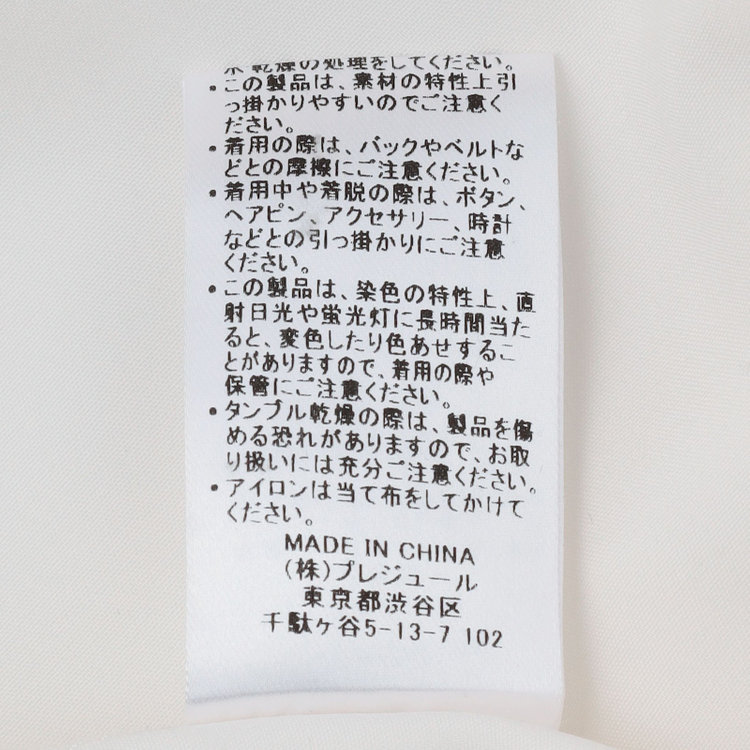 乾燥の処理をしてください。
・この製品は、素材の特性上引
っ掛かりやすいのでご注意く
ださい。
・着用の際は、バックやベルトな
どとの摩擦にご注意ください。
・着用中や着脱の際は、ボタン、
ヘアピン、アクセサリー、時計
などとの引っ掛かりにご注意
ください。
・この製品は、染色の特性上、直
射日光や蛍光灯に長時間当た
ると、変色したり色あせするこ
とがありますので、着用の際や
保管にご注意ください。
・タンブル乾燥の際は、製品を傷
める恐れがありますので、お取
り扱いには充分ご注意ください。
・アイロンは当て布をしてかけて
ください。
MADE IN CHINA
(株)プレジュール
東京都渋谷区
千駄ヶ谷5-13-7 102